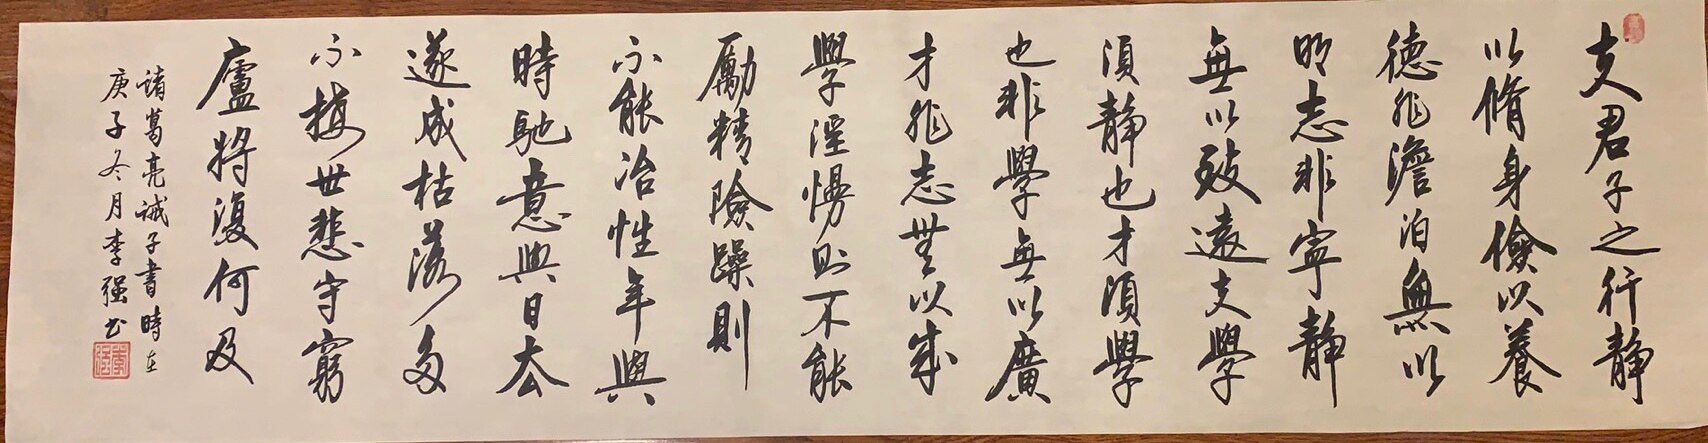 夫君子之行静
以脩身儉以養
德非澹泊無以
明志非寧静
無以致遠夫學
須静也才須學
也非學無以廣
才非志無以成
學淫慢則不能
勵精險躁則
不能冶性年與
時馳意與日去
遂成枯落多
不接世悲守窮
廬將復何及
諸葛亮誡子書時在
庚子冬月李强书